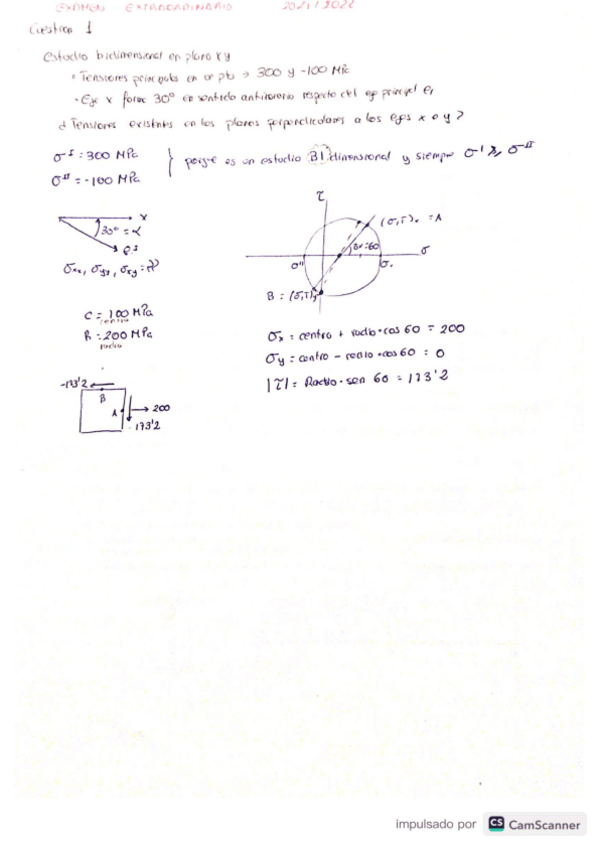 EXAMEN EXTRAORDINARIO 20/1/2022
Cuestion 1
Estudio bidimensional en plano xy
• Tensiones principales en un pto → 300 y -100 MPa
• Eje x forma 30° en sentido antihorario respecto del eje principal
¿Tensiones existentes en los planos perpendiculares a los ejes x e y?
σᴵ = 300 MPa
σᴵᴵ = -100 MPa
porque es un estudio BIdimensional y siempre σᴵ ≥ σᴵᴵ
x
30° = α
σxx, σyy, σxy = ?
C = 100 MPa
centro
R = 200 MPa
radio
τ
(σ,τ)x = A
=60
σ
σᴵᴵ
B = (σ,τ)y
σx = centro + radio·cos 60 = 200
σy = centro - radio·cos 60 = 0
|τ| = Radio·sen 60 = 173'2
-173'2
B
A
200
173'2
impulsado por CS CamScanner